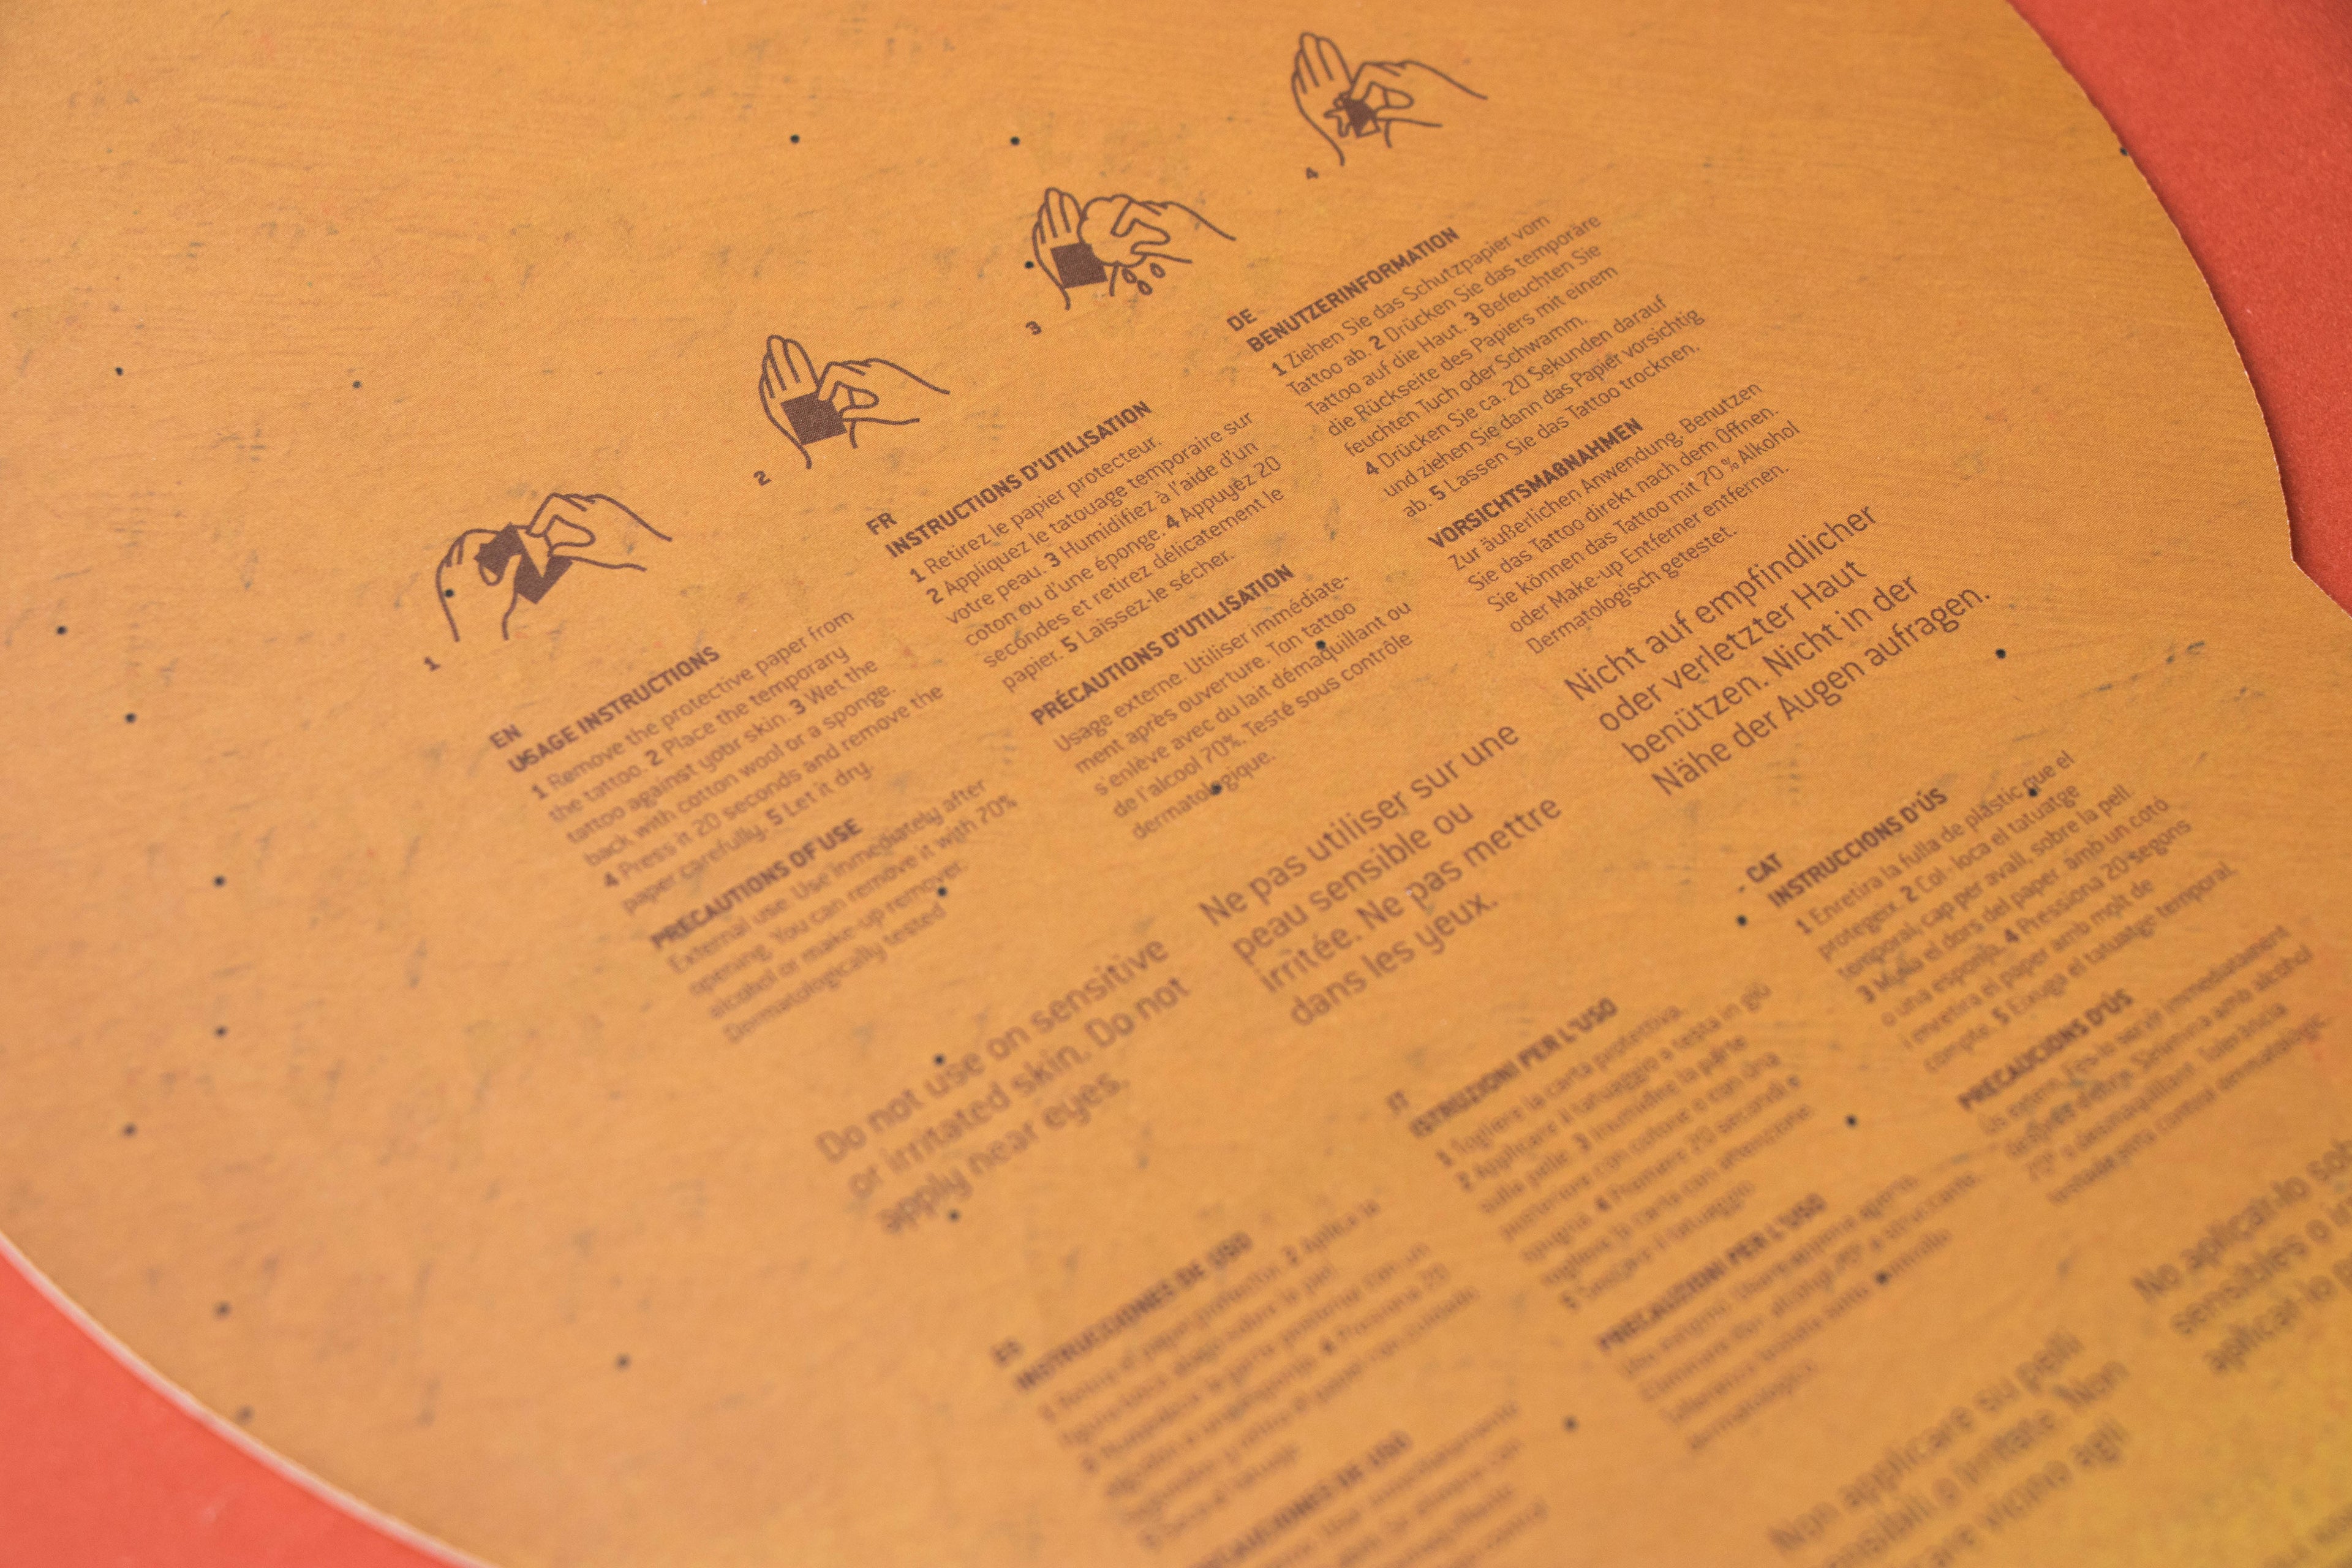 1
2
3
4
EN
USAGE INSTRUCTIONS
1 Remove the protective paper from
the tattoo. 2 Place the temporary
tattoo against your skin. 3 Wet the
back with cotton wool or a sponge.
4 Press it 20 seconds and remove the
paper carefully. 5 Let it dry.
PRECAUTIONS OF USE
External use. Use immediately after
opening. You can remove it with 70%
alcohol or make-up remover.
Dermatologically tested
Do not use on sensitive
or irritated skin. Do not
apply near eyes.
FR
INSTRUCTIONS D'UTILISATION
1 Retirez le papier protecteur.
2 Appliquez le tatouage temporaire sur
votre peau. 3 Humidifiez à l'aide d'un
coton ou d'une éponge. 4 Appuyez 20
secondes et retirez délicatement le
papier. 5 Laissez-le sécher.
PRÉCAUTIONS D'UTILISATION
Usage externe. Utiliser immédiate-
ment après ouverture. Ton tattoo
s'enlève avec du lait démaquillant ou
de l'alcool 70%. Testé sous contrôle
dermatologique.
Ne pas utiliser sur une
peau sensible ou
irritée. Ne pas mettre
dans les yeux.
DE
BENUTZERINFORMATION
1 Ziehen Sie das Schutzpapier vom
Tattoo ab. 2 Drücken Sie das temporäre
Tattoo auf die Haut. 3 Befeuchten Sie
die Rückseite des Papiers mit einem
feuchten Tuch oder Schwamm.
4 Drücken Sie ca. 20 Sekunden darauf
und ziehen Sie dann das Papier vorsichtig
ab. 5 Lassen Sie das Tattoo trocknen.
VORSICHTSMAßNAHMEN
Zur äußerlichen Anwendung. Benutzen
Sie das Tattoo direkt nach dem Öffnen.
Sie können das Tattoo mit 70 % Alkohol
oder Make-up Entferner entfernen.
Dermatologisch getestet.
Nicht auf empfindlicher
oder verletzter Haut
benützen. Nicht in der
Nähe der Augen aufragen.
ES
INSTRUCCIONES DE USO
1 Retira el papel protector. 2 Aplica la
4 Presiona 20
IT
ISTRUZIONI PER L'USO
1 Togliere la carta protettiva.
2 Applicare il tatuaggio a testa in giù
sulla pelle. 3 Inumidire la parte
posteriore con cotone o con una
spugna. 4 Premere 20 secondi e
togliere la carta con attenzione.
PRECAUZIONI PER L'USO
Non applicare su pelli
irritate. Non
vicino agli
CAT
INSTRUCCIONS D'ÚS
1 Enretira la fulla de plàstic que el
protegeix. 2 Col·loca el tatuatge
temporal, cap per avall, sobre la pell.
3 Mulla el dors del paper amb un cotó
o una esponja. 4 Pressiona 20 segons
i enretira el paper amb molt de
compte. 5 Eixuga el tatuatge temporal.
PRECAUCIONS D'ÚS
Ús extern. Fes-lo servir immediatament
amb alcohol
No aplicar-lo
sensibles o
aplicar-lo